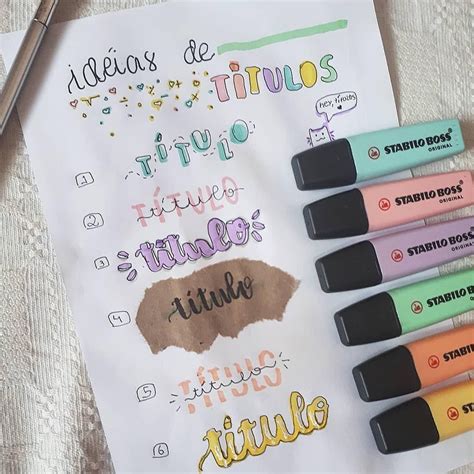 idéias de
TÍTULOS
TÍTULO
hey, títulos
1
TÍTULO
título
2
título
3
título
4
TÍTULO
título
5
título
6
STABILO BOSS
ORIGINAL
STABILO BOSS
ORIGINAL
STABILO BOSS
ORIGINAL
STABILO BOSS
ORIGINAL
STABILO BOSS
ORIGINAL
STABILO BOSS
ORIGINAL